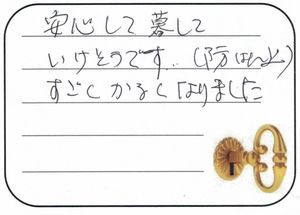 安心して暮して
いけそうです。(防犯上)
すごくかるくなりました